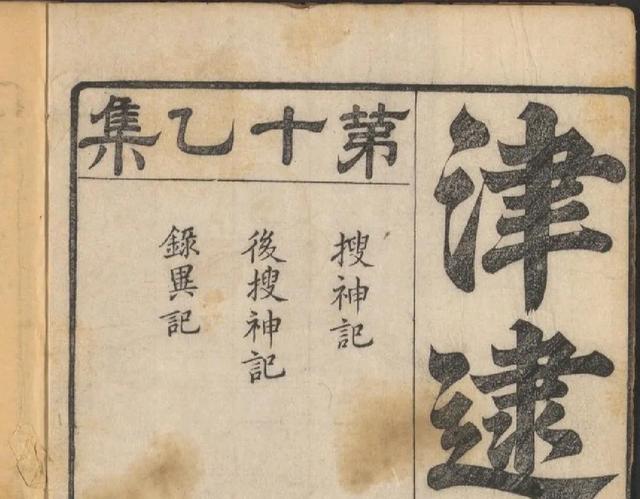 津逮
苐十乙集
搜神記
後搜神記
錄異記